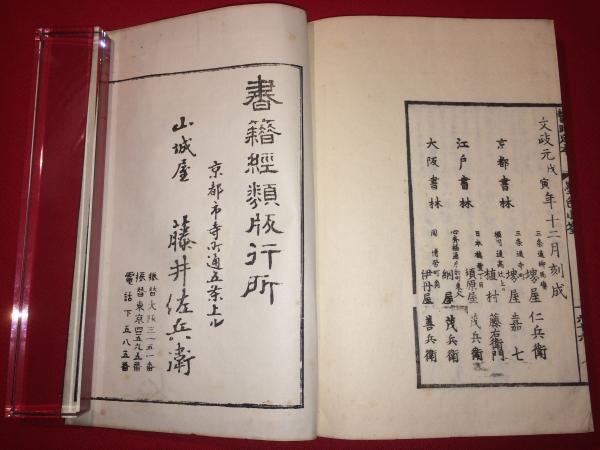 文政元戊寅年十二月刻成
京都書林
堺屋仁兵衛
堺屋嘉七
植村藤右衛門
江戸書林
須原屋茂兵衛
大阪書林
網屋茂兵衛
伊丹屋善兵衛
書籍經類版行所
京都市寺町通五条上ル
山城屋 藤井佐兵衛
振替大阪三一五一番
振替東京四五九五番
電話下五八五番